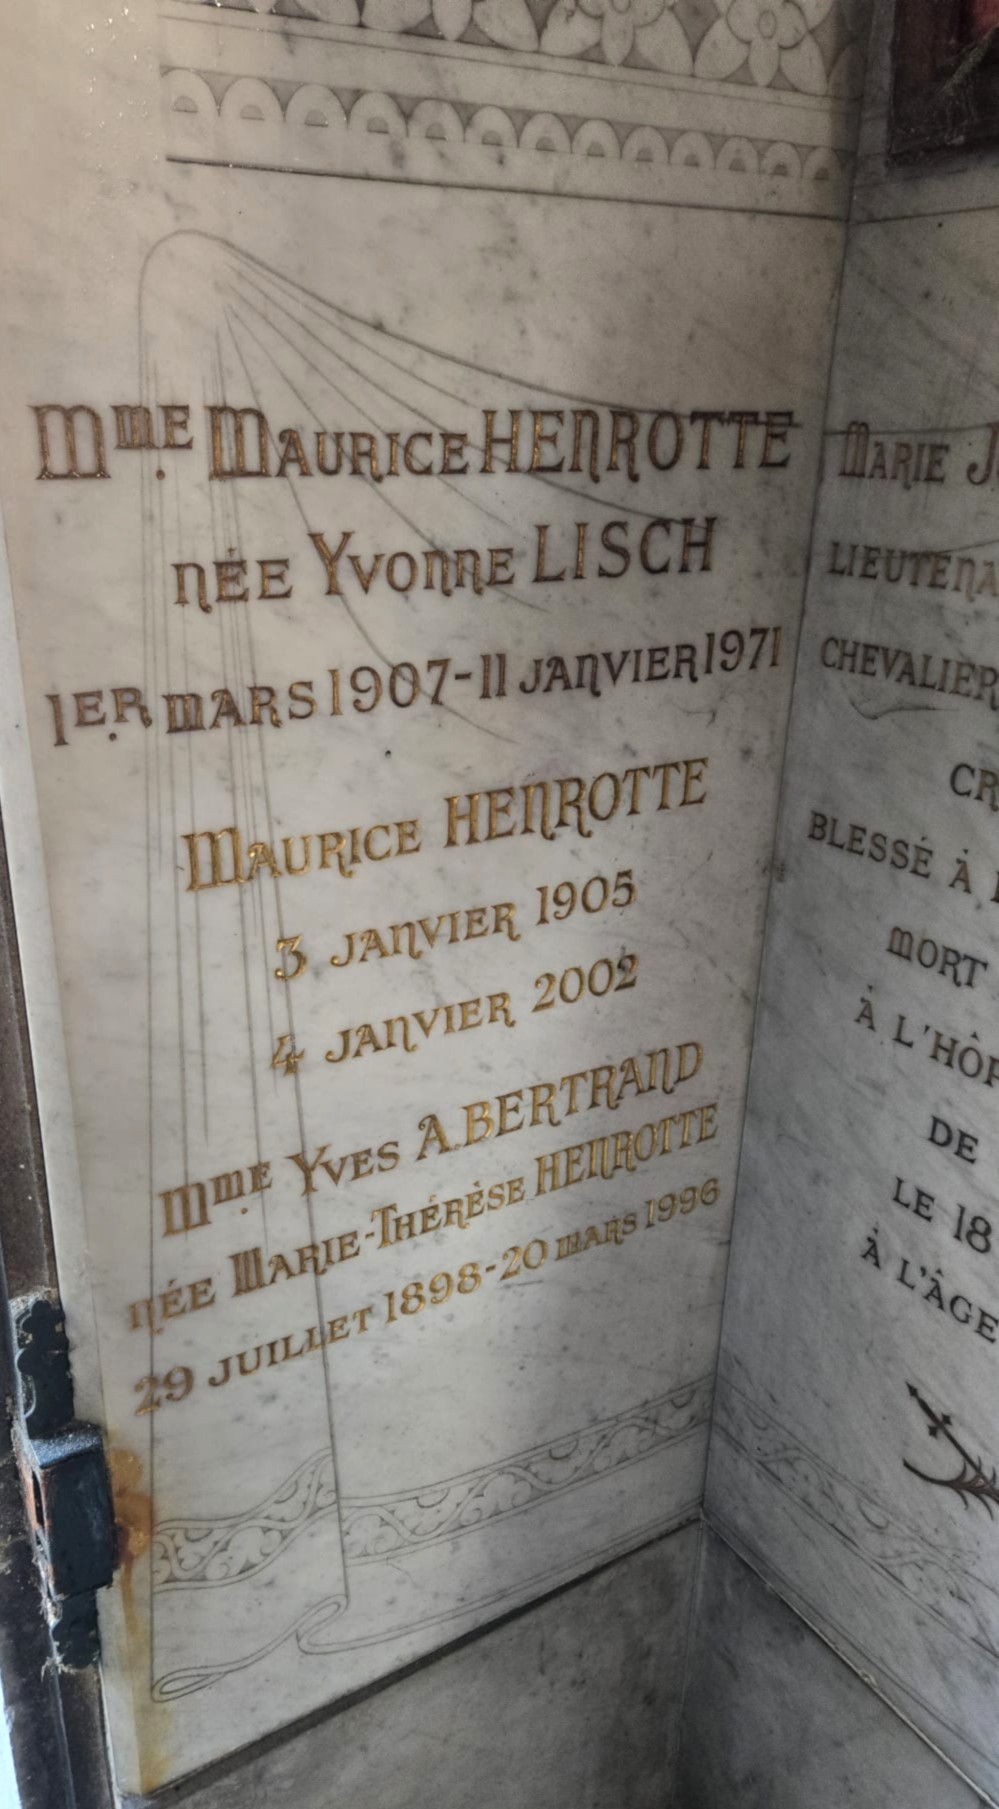 Mme. Maurice HENROTTE
née Yvonne LISCH
1er. mars 1907-11 janvier 1971
Maurice HENROTTE
3 janvier 1905
4 janvier 2002
Mme. Yves A.BERTRAND
née Marie-Thérèse HENROTTE
29 juillet 1898-20 mars 1996
Marie
LIEUTENA
CHEVALIER
CR
BLESSÉ À
MORT
À L'HÔP
DE
LE 18
À L'ÂGE